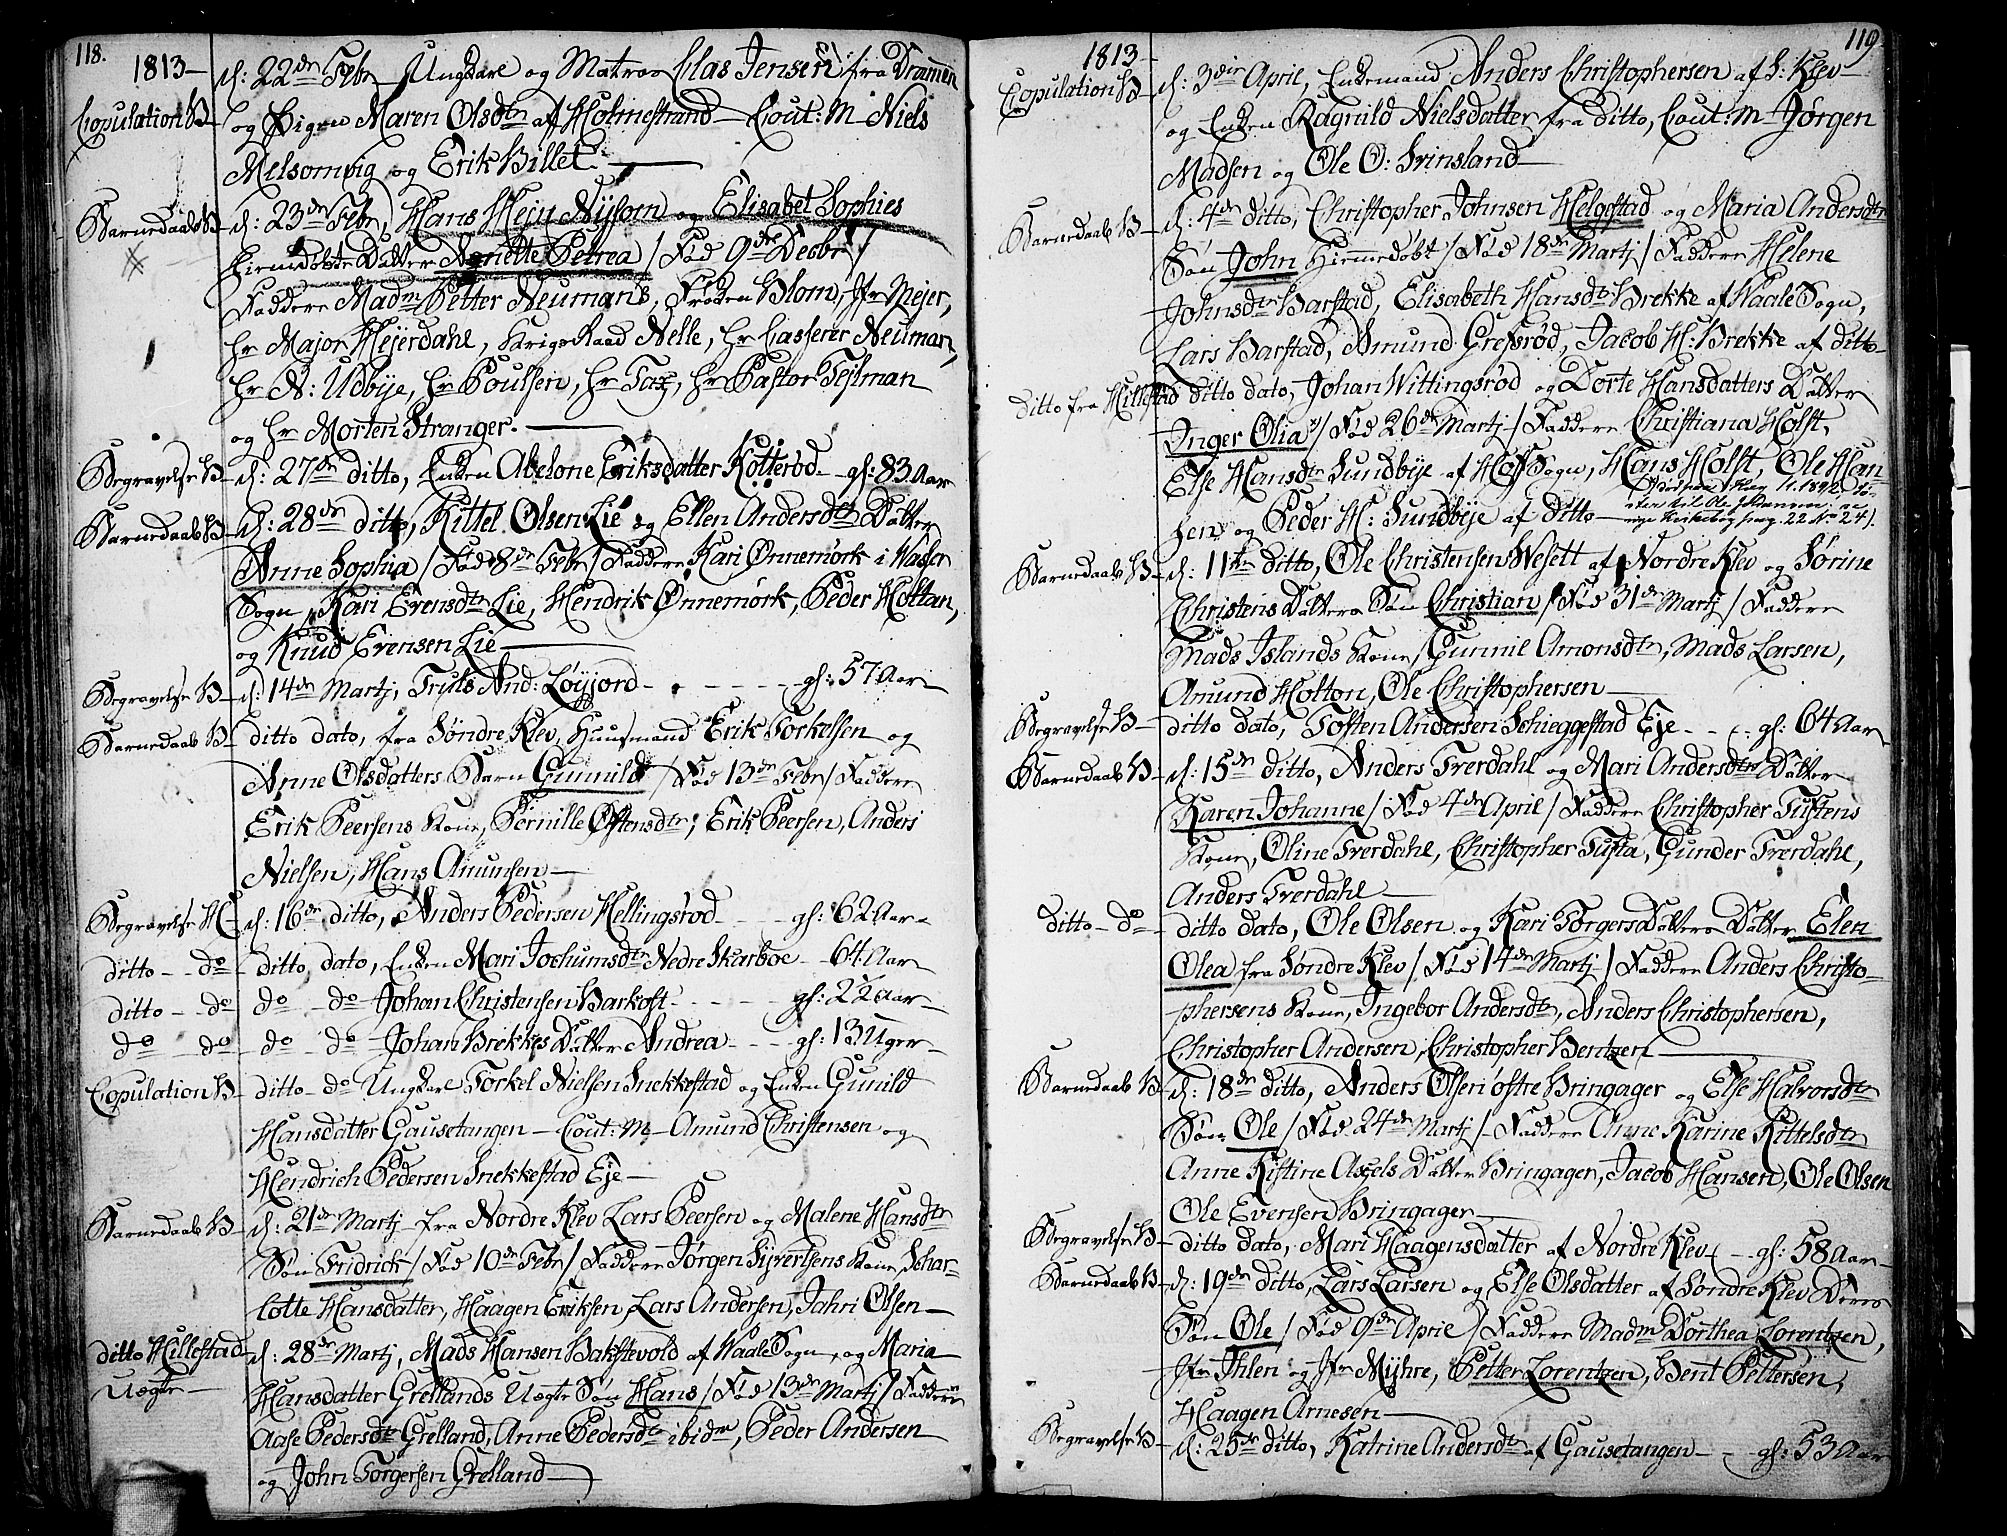 118.
1813
Copulation B
d: 22de Febr Ungkarl og Matros Clas Jensen fra Drammen
og Pigen Maren Olsdtr af Holmestrand Cout: M Niels
Melsomvig og Erik Billet
Barnedaab B
d: 23de Febr, Hans Hejn Nysom og Elisabet Sophies
hiemdøbte Datter Nariette Petrea / Fød 9de Decbr /
Faddere Madm Petter Neumans, Frøken Blom, Jfr Mejer,
Hr Major Hejerdahl, Krigs Raad Nelle, Hr Casserer Neuman,
Hr N: Udbye, Hr Poulsen, Hr Fax, Hr Pastor Tejlman
og Hr Morten Stranger.
Begravelse B
d: 27de ditto, Enken Abelone Eriksdatter Kotterød gl: 83 Aar
Barnedaab B
d: 28de ditto, Kittel Olsen Lie og Ellen Andersdtr Datter
Anne Sophia / Fød 8de Febr / Faddere Kari Ønnemørk i Waasler
Sogn, Kari Evensdtr Lie, Hendrik Ønnemørk, Peder Holtan,
og Knud Evensen Lie
Begravelse B
d: 14de Martj, Truls And: Løyjord gl: 57 Aar
Barnedaab B
ditto dato, fra Søndre Klev, Huusmand Erik Torkelsen og
Anne Olsdatters Barn Gunnild / Fød 13de Febr / Faddere
Erik Peersens Kone, Pernille Østensdtr, Erik Peersen, Anders
Nielsen, Hans Amunsen
Begravelse H
d: 16de ditto, Anders Pedersen Hellingsrød gl: 62 Aar
ditto do
ditto dato, Enken Mari Jochumsdtr Nedre Skarboe 64 Aar
ditto do
do do Johan Christensen Barkost gl: 22 Aar
do do
do do Johan Brekkes Datter Andrea gl: 13 Uger
Copulation B
ditto do Ungkarl Torkel Nielsen Snekkestad og Enken Gunild
Hansdatter Gausetangen Cout: M Amund Christensen og
Hendrich Pedersen Snekkestad Eje
Barnedaab B
d: 21de Martj fra Nordre Klev Lars Peersen og Malene Hansdtr
Søn Fridrick / Fød 10de Febr / Faddere Jørgen Syvertsens Kone, Schar-
lotte Hansdatter, Haagen Eriksen, Lars Andersen, Jahri Olsen
ditto Hillestad
Uægte
d: 28de Martj, Mads Hansen Bakstevold af Waale Sogn, og Maria
Hansdatter Grellands Uægte Søn Hans / Fød 13de Martj / Faddere
Aase Pedersdtr Grelland, Anne Pedersdtr ibidm, Peder Andersen
og John Torgersen Grelland
119
1813
Copulation B
d: 3die April, Enkemand Anders Christophersen af S: Klev
og Enken Ragnild Nielsdatter fra ditto, Cout: M Jørgen
Madsen og Ole O: Svinsland
Barnedaab B
d: 4de ditto, Christopher Johnsen Helgestad og Maria Andersdtr
Søn John Hiemedøbt / Fød 18de Martj / Faddere Helene
Johnsdtr Barstad, Elisabeth Hansdtr Brekke af Waale Sogn,
Lars Barstad, Amund Grefsrød, Jacob H: Brekke af ditto
ditto fra Hillestad
ditto dato, Johan Wittingsrød og Dorte Hansdatters Datter
Inger Olia / Fød 26de Martj / Faddere Christiana Holst,
Else Hansdtr Sundbye af Hoff Sogn, Hans Holst, Ole Han-
sen og Peder H: Sundbye af ditto
Barnedaab B
d: 11te ditto, Ole Christensen Wesett af Nordre Klev og Sørine
Christens Datters Søn Christian / Fød 31de Martj / Faddere
Mads Islands Kone, Gunnil Amonsdtr, Mads Larsen,
Amund Holton, Ole Christophersen
Begravelse B
ditto dato, Tosten Andersen Schieggestad Eje gl: 64 Aar
Barnedaab B
d: 15de ditto, Anders Trerdahl og Mari Andersdtr Datter
Karen Johanne / Fød 4de April / Faddere Christopher Tuftens
Kone, Oline Trerdahl, Christopher Tufta, Gunder Trerdahl,
Anders Trerdahl
ditto do
ditto dato, Ole Olsen og Kari Torgers Datters Datter Elen
Olea fra Søndre Klev / Fød 14de Martj / Faddere Anders Christo-
phersens Kone, Ingebor Andersdtr, Anders Christophersen,
Christopher Andersen, Christopher Bentzen
Barnedaab B
d: 18de ditto, Anders Olsen østre Bringager og Else Halvorsdtr
Søn Ole / Fød 24de Martj / Faddere Anne Karine Kittelsdtr
Anne Kistine Axels Datter Bringager, Jacob Hansen, Ole Olsen
Ole Evensen Bringager
Begravelse B
ditto dato, Mari Haagensdatter af Nordre Klev gl: 58 Aar
Barnedaab B
d: 19de ditto, Lars Larsen og Else Olsdatter af Søndre Klev Deres
Søn Ole / Fød 9de April / Faddere Madm Dorthea Lorentzen,
Jfr Ihlen og Jfr Myhre, Petter Lorentzen, Bent Pettersen,
Haagen Arnesen
Begravelse B
d: 25de ditto, Katrine Andersdtr af Gausetangen gl: 53 Aar